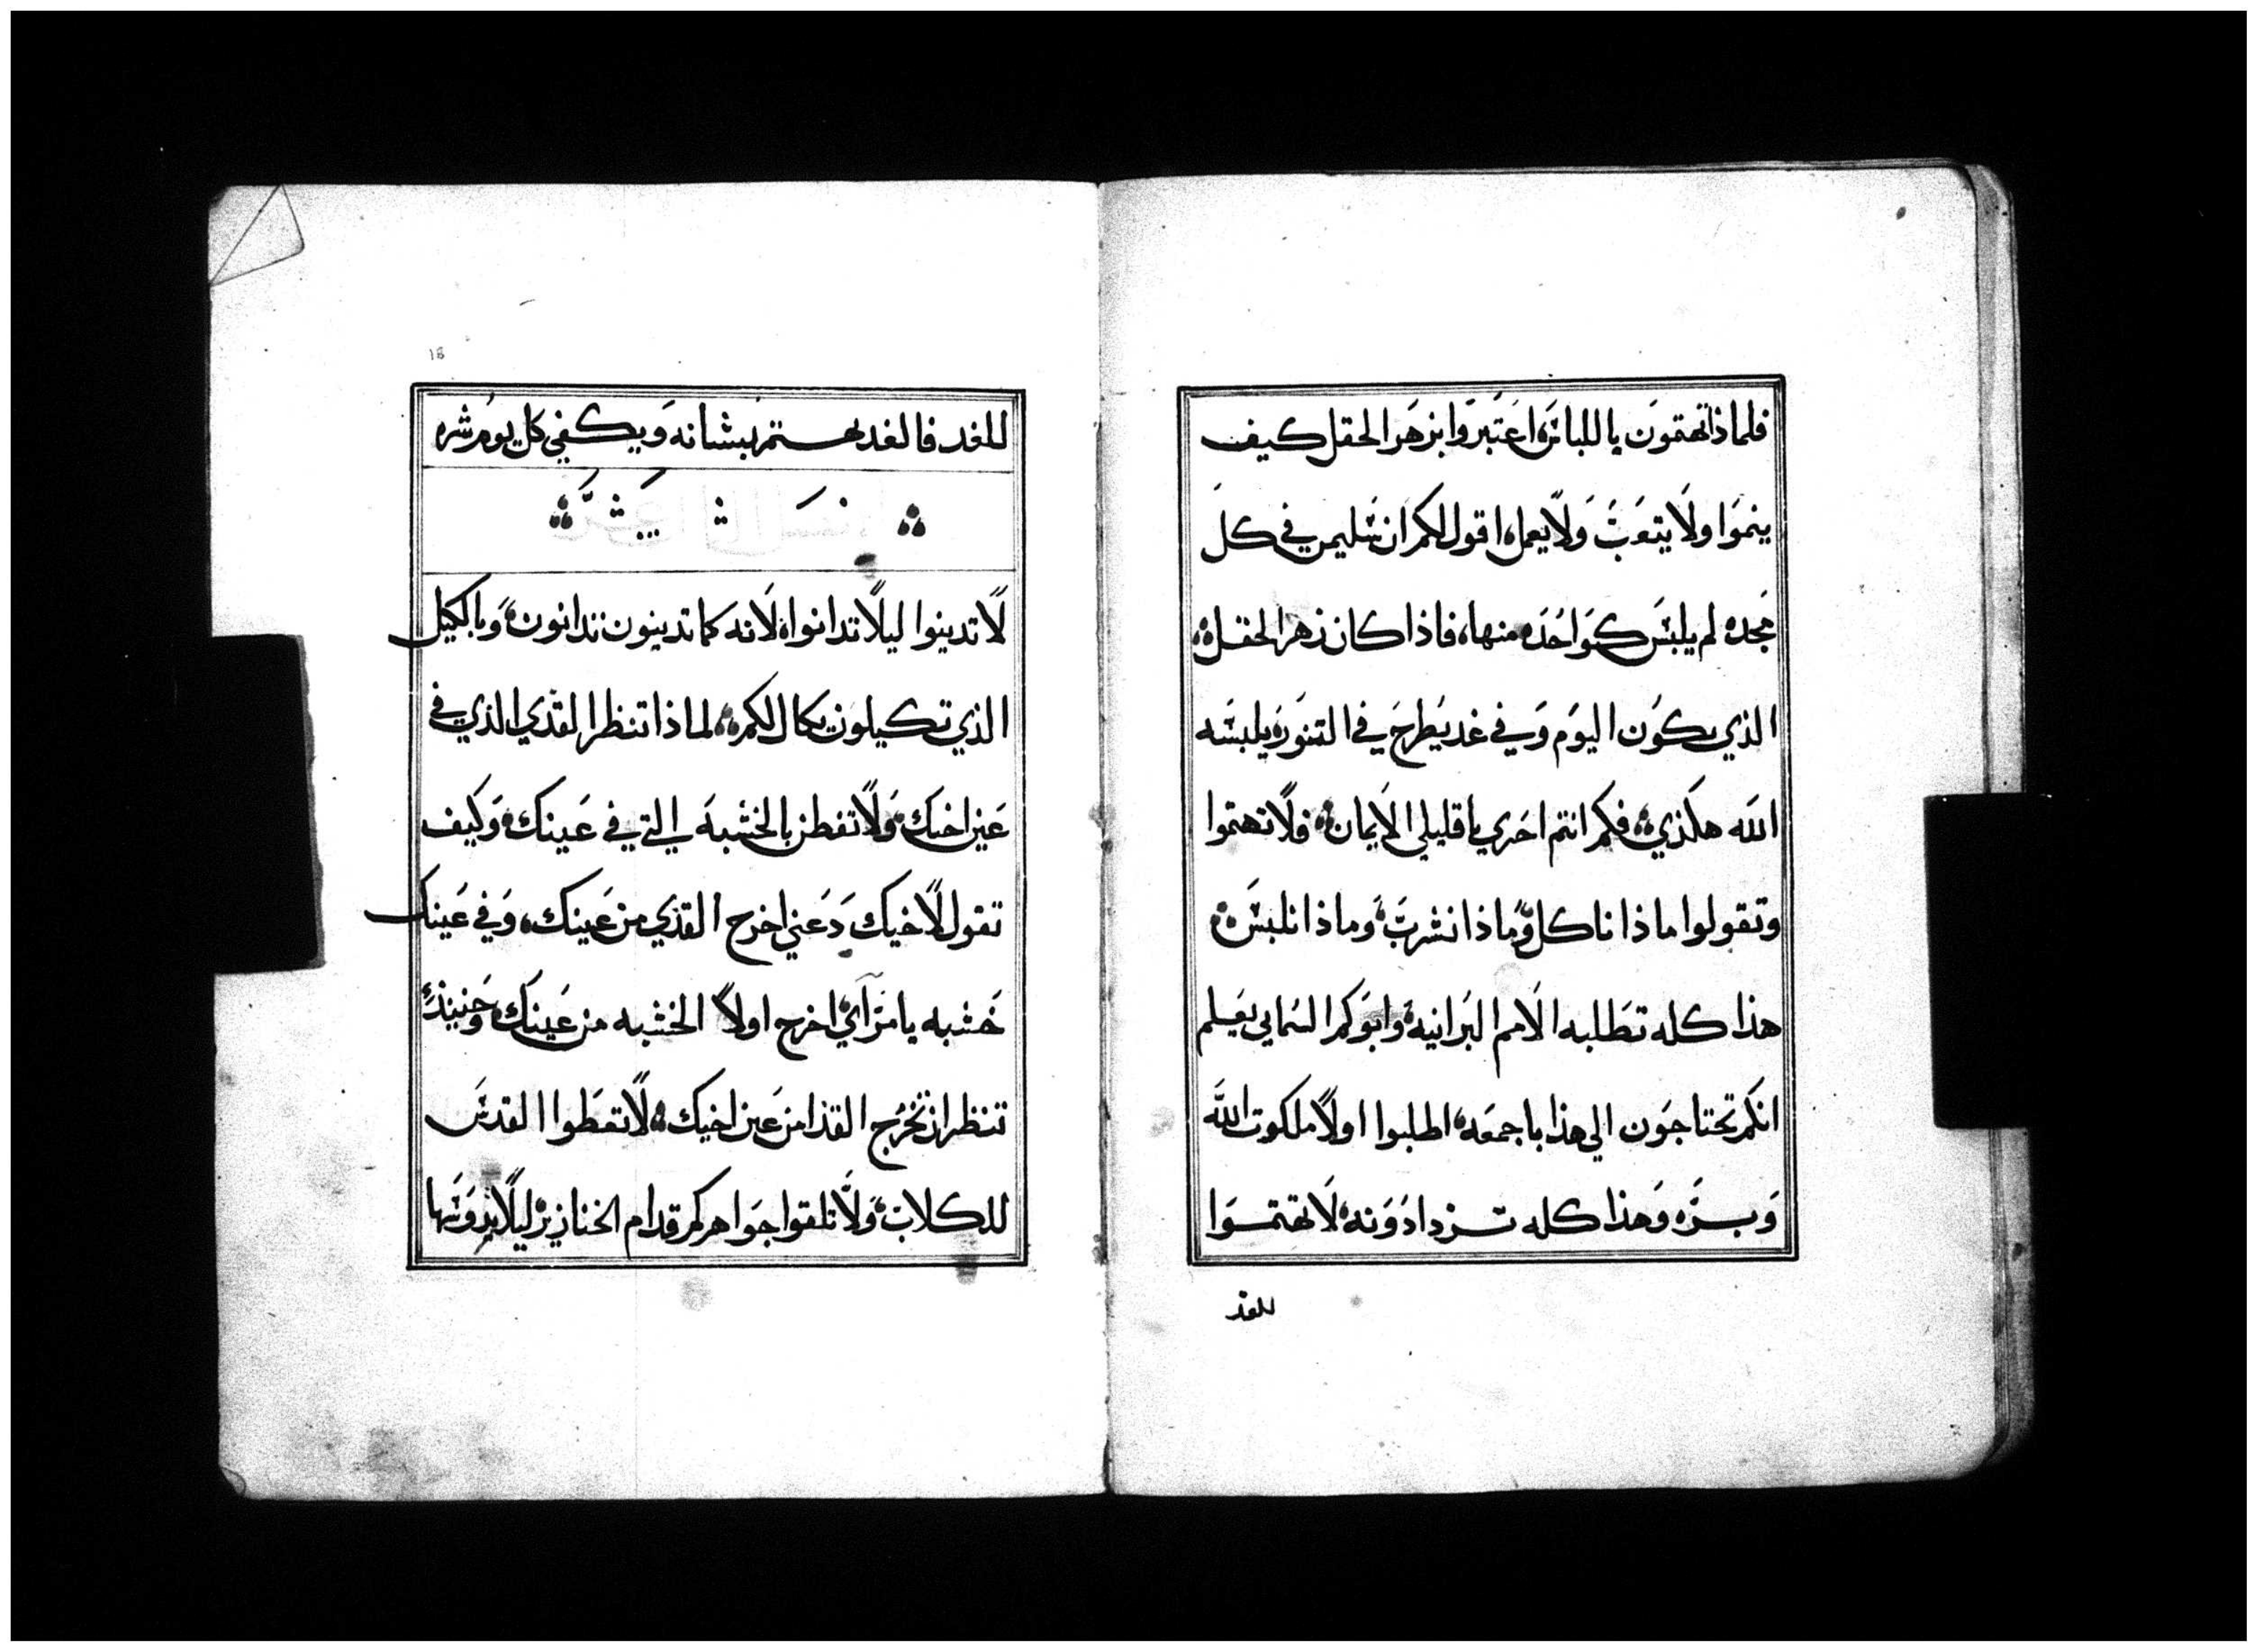 فلماذا تهتمون باللباس اعتبروا بزهر الحقل كيف
ينموا ولا يتعب ولا يعمل اقول لكم ان سليمن في كل
مجده لم يلبس كواحده منها، فاذا كان زهر الحقل
الذي يكون اليوم وفي غد يطرح في التنور يلبسه
الله هكذي فكم انتم احري يا قليلي الايمان فلا تهتموا
وتقولوا ماذا ناكل وماذا نشرب وماذا نلبس
هذا كله تطلبه الامم البرانيه وابوكم السمايي يعلم
انكم تحتاجون الي هذا باجمعه اطلبوا اولا ملكوت الله
وبره وهذا كله تزدادونه لا تهتموا
للغد
18
للغد فالغد يهتم بشانه ويكفي كل يوم شره
لا تدينوا ليلا تدانوا لانه كما تدينون تدانون وبالكيل
الذي تكيلون يكال لكم لماذا تنظر القذي الذي في
عين اخيك ولا تفطن بالخشبه التي في عينك وكيف
تقول لاخيك دعني اخرج القذي من عينك، وفي عينك
خشبه يا مرآي اخرج اولا الخشبه من عينك وحينيذ
تنظر ان تخرج القذا من عين اخيك لا تعطوا القدس
للكلاب ولا تلقوا جواهركم قدام الخنازير ليلا يدوسها